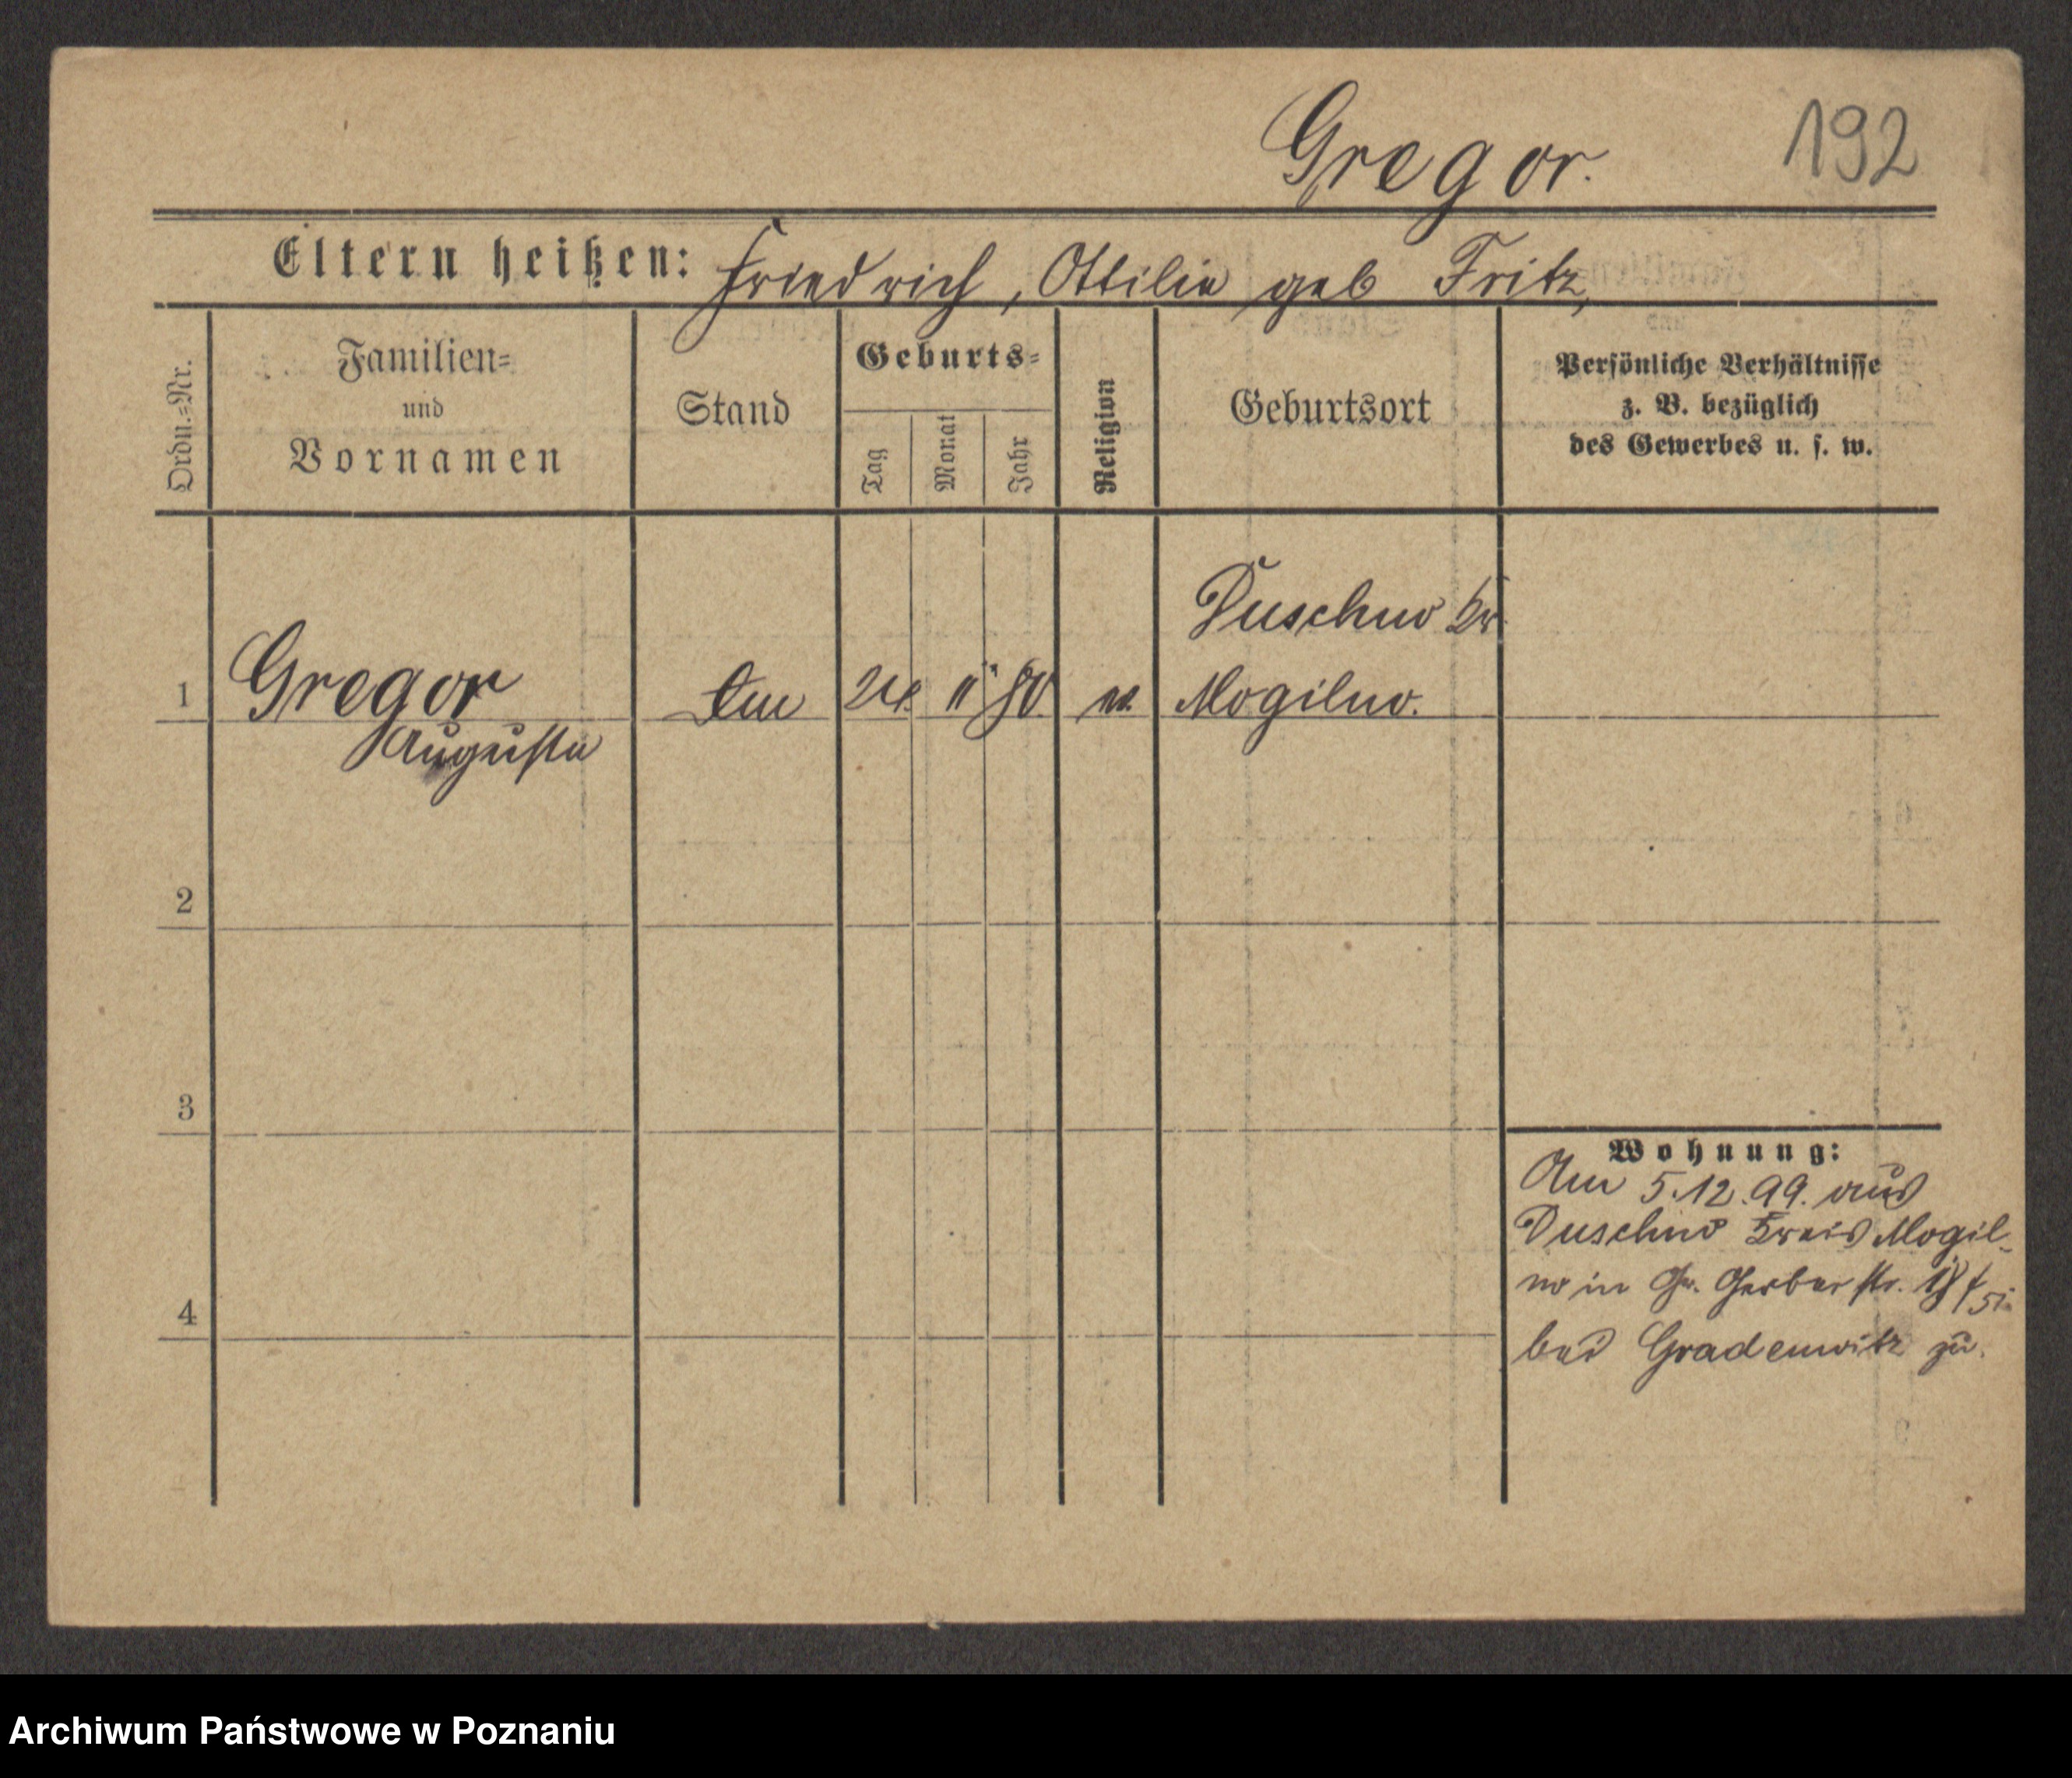 Gregor. 192
Eltern heißen: Friedrich, Ottilie geb Fritz,
Ordn.=Nr. Familien= und Vornamen Stand Geburts= Tag Monat Jahr Religion Geburtsort Persönliche Verhältnisse z. B. bezüglich des Gewerbes u. s. w.
Duschno Kr.
1 Gregor 24. 11 80. ev. Mogilno.
Augusta
2
3
Wohnung:
Am 5.12.99. aus
Duschno Kreis Mogil-
4 no in Gr. Gerberstr. 18
bei Gradenwitz zu.
Archiwum Państwowe w Poznaniu